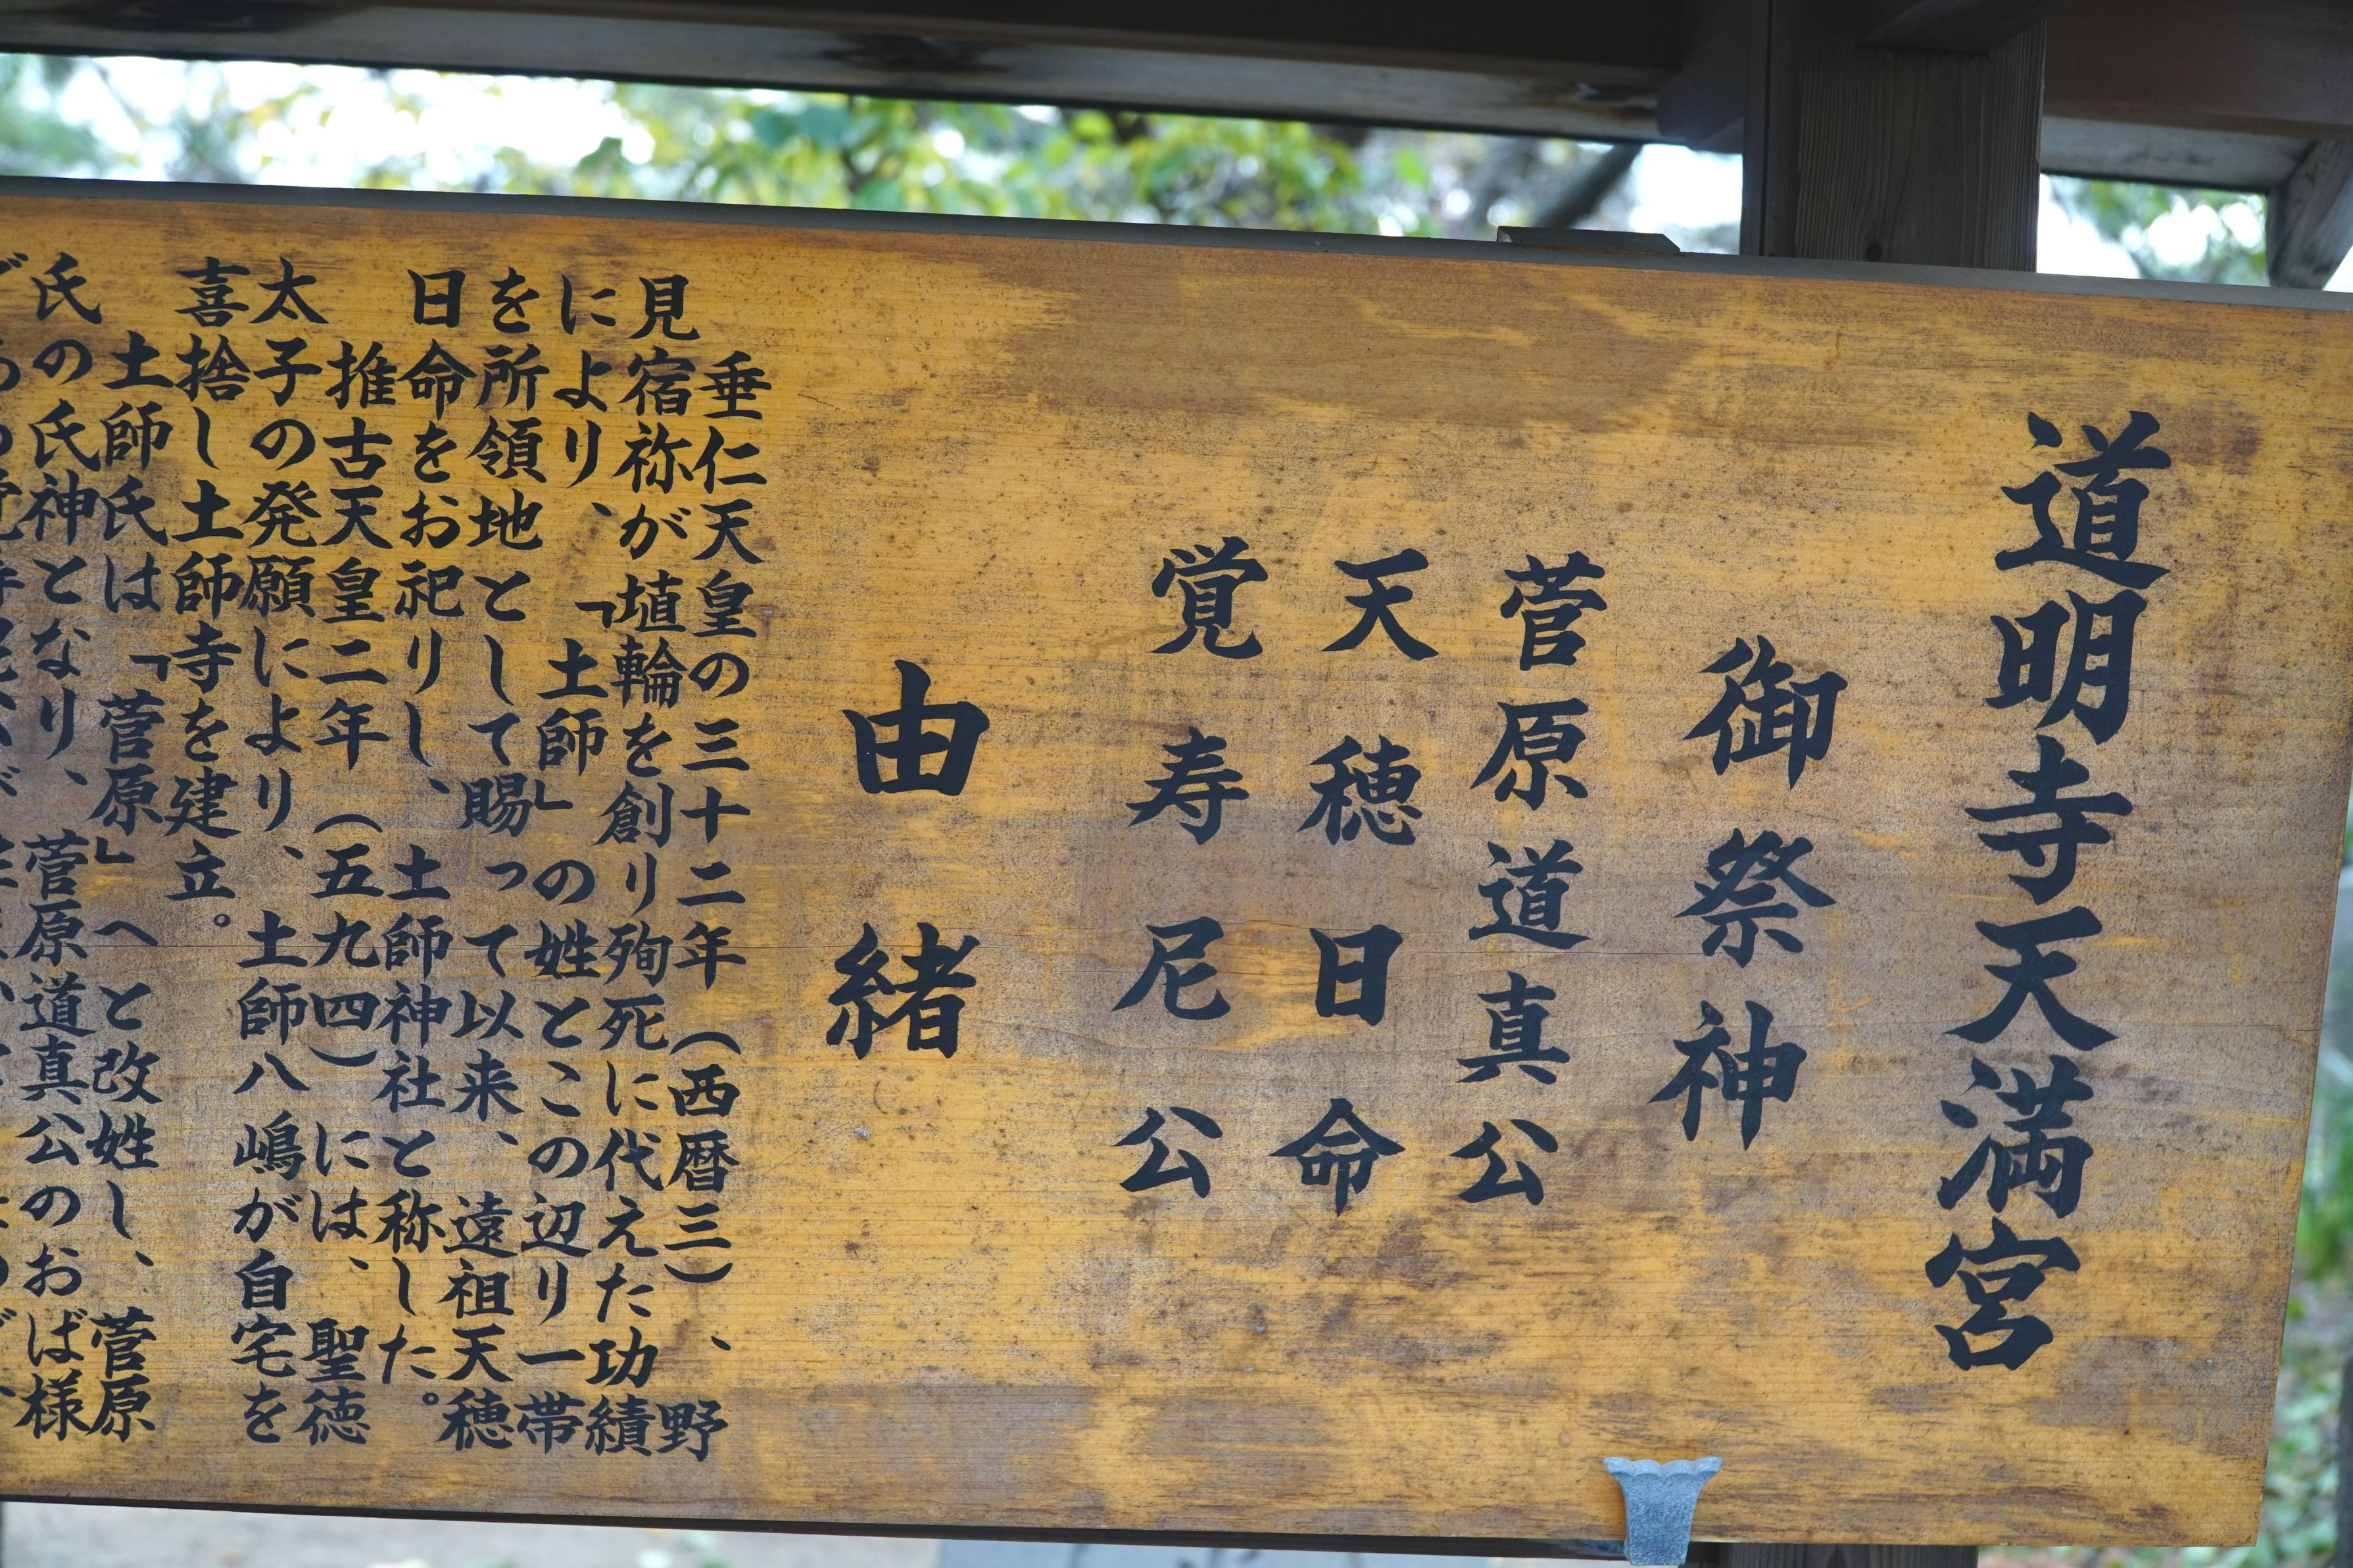 道明寺天満宮
御祭神
菅原道真公
天穂日命
覚寿尼公
由緒
垂仁天皇の三十二年(西暦三)、野
見宿祢が「埴輪を創り殉死に代えた功績
により、「土師」の姓とこの辺り一帯
を所領地として賜って以来、遠祖天穂
日命をお祀りし、土師神社と称した。
推古天皇二年(五九四)には、聖徳
太子の発願により、土師八嶋が自宅を
喜捨し土師寺を建立。
土師氏は「菅原」へと改姓し、菅原
氏の氏神となり、菅原道真公のおば様